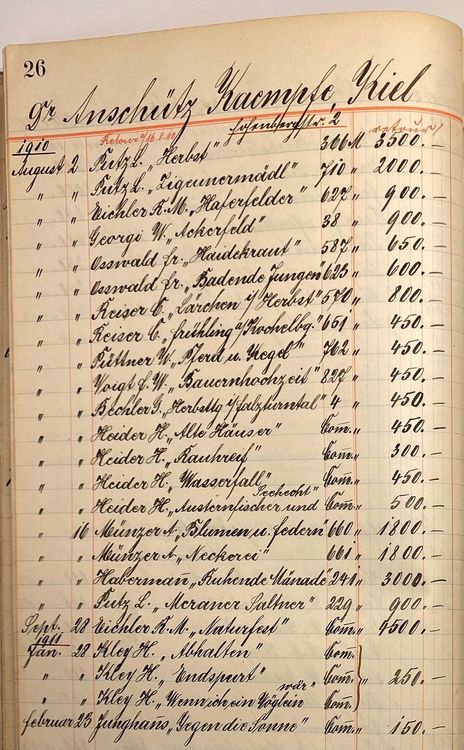 26
Dr Anschütz Kaempfe, Kiel
Hohenbergstr. 2
1910 Retour 16.8.10 retour
August 2 Putz L. „Herbst" 366 M 3500.—
„ „ Putz L. „Zigeunermädl" 710 „ 2000.—
„ „ Eichler R. M. „Haferfelder" 627 „ 900.—
„ „ Georgi W. „Ackerfeld" 38 „ 900.—
„ „ Osswald Fr. „Haidekraut" 587 „ 650.—
„ „ Osswald Fr. „Badende Jungen" 623 „ 600.—
„ „ Reiser C. „Lärchen i/ Herbst" 570 „ 800.—
„ „ Reiser C. „Frühling a/Kochelbg." 651 „ 450.—
„ „ Püttner W. „Pferd u. Kegel" 762 „ 450.—
„ „ Voigt F. W. „Bauernhochzeit" 827 „ 450.—
„ „ Bechler G. „Herbsttg i/Falzturntal" 4 „ 450.—
„ „ Heider H. „Alte Häuser" Com. „ 450.—
„ „ Heider H. „Rauhreif" Com. „ 300.—
„ „ Heider H. „Wasserfall" Com. „ 450.—
„ „ Heider H. „Austernfischer und Seehecht" Com. „ 500.—
„ 16 Münzer A. „Blumen u. Federn" 660 „ 1800.—
„ „ Münzer A. „Neckerei" 661 „ 1800.—
„ „ Habermann „Ruhende Mänade" 241 „ 3000.—
„ „ Putz L. „Meraner Saltner" 229 „ 900.—
Sept. 28 Eichler R. M. „Naturfest" Com. „ 4500.—
1911
Jan. 28 Kley H. „Abhalten" Com.
„ „ Kley H. „Endspurt" Com. „ 250.—
„ „ Kley H. „Wenn ich ein Vöglein wär" Com.
Februar 23 Junghanns „Gegen die Sonne" Com. „ 150.—